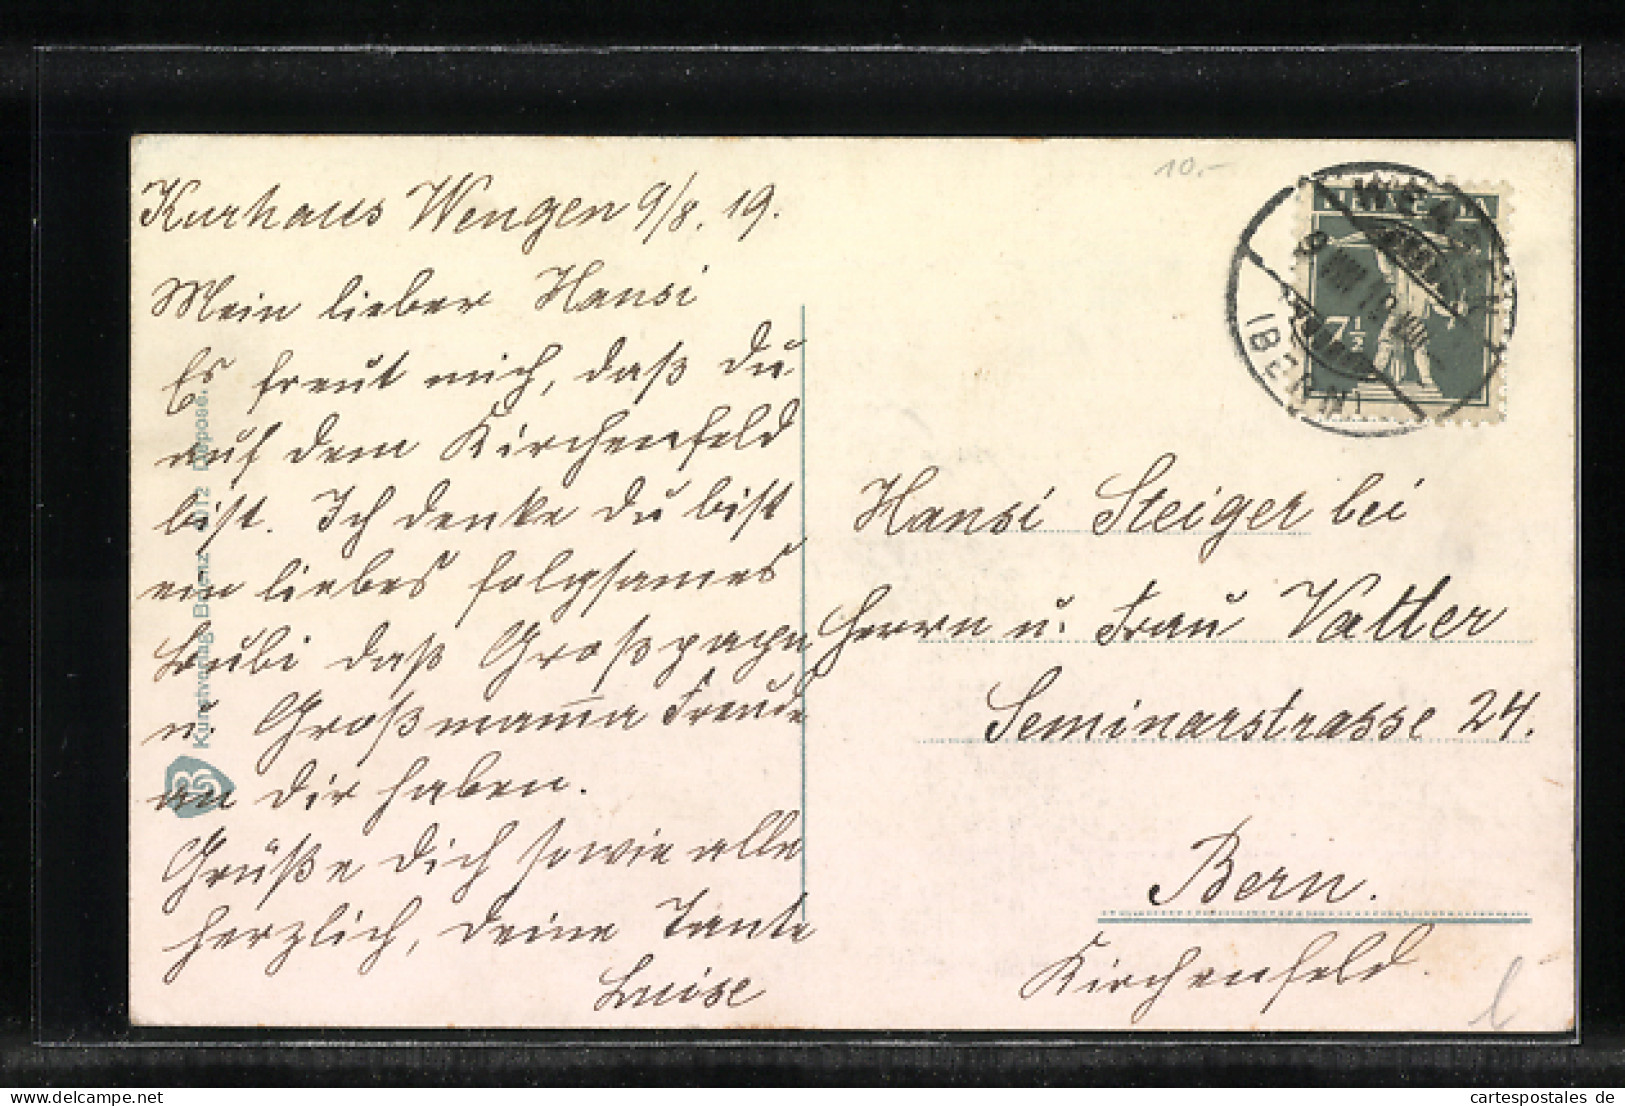 10.-
Kurhaus Wengen 9/8. 19.
Mein lieber Hansi
Es freut mich, daß Du
auf dem Kirchenfeld
bist. Ich denke Du bist
ein liebes folgsames
Bubi daß Großpapa
u. Großmam̅a Freude
an Dir haben.
Grüße Dich sowie alle
herzlich, Deine Tante
Luise
HELVETIA
7½
WENGEN
(BERN)
Hansi Steiger bei
Herrn u. Frau Vatter
Seminarstrasse 24.
Bern.
Kirchenfeld.
Kunstverlag
cartespostales de